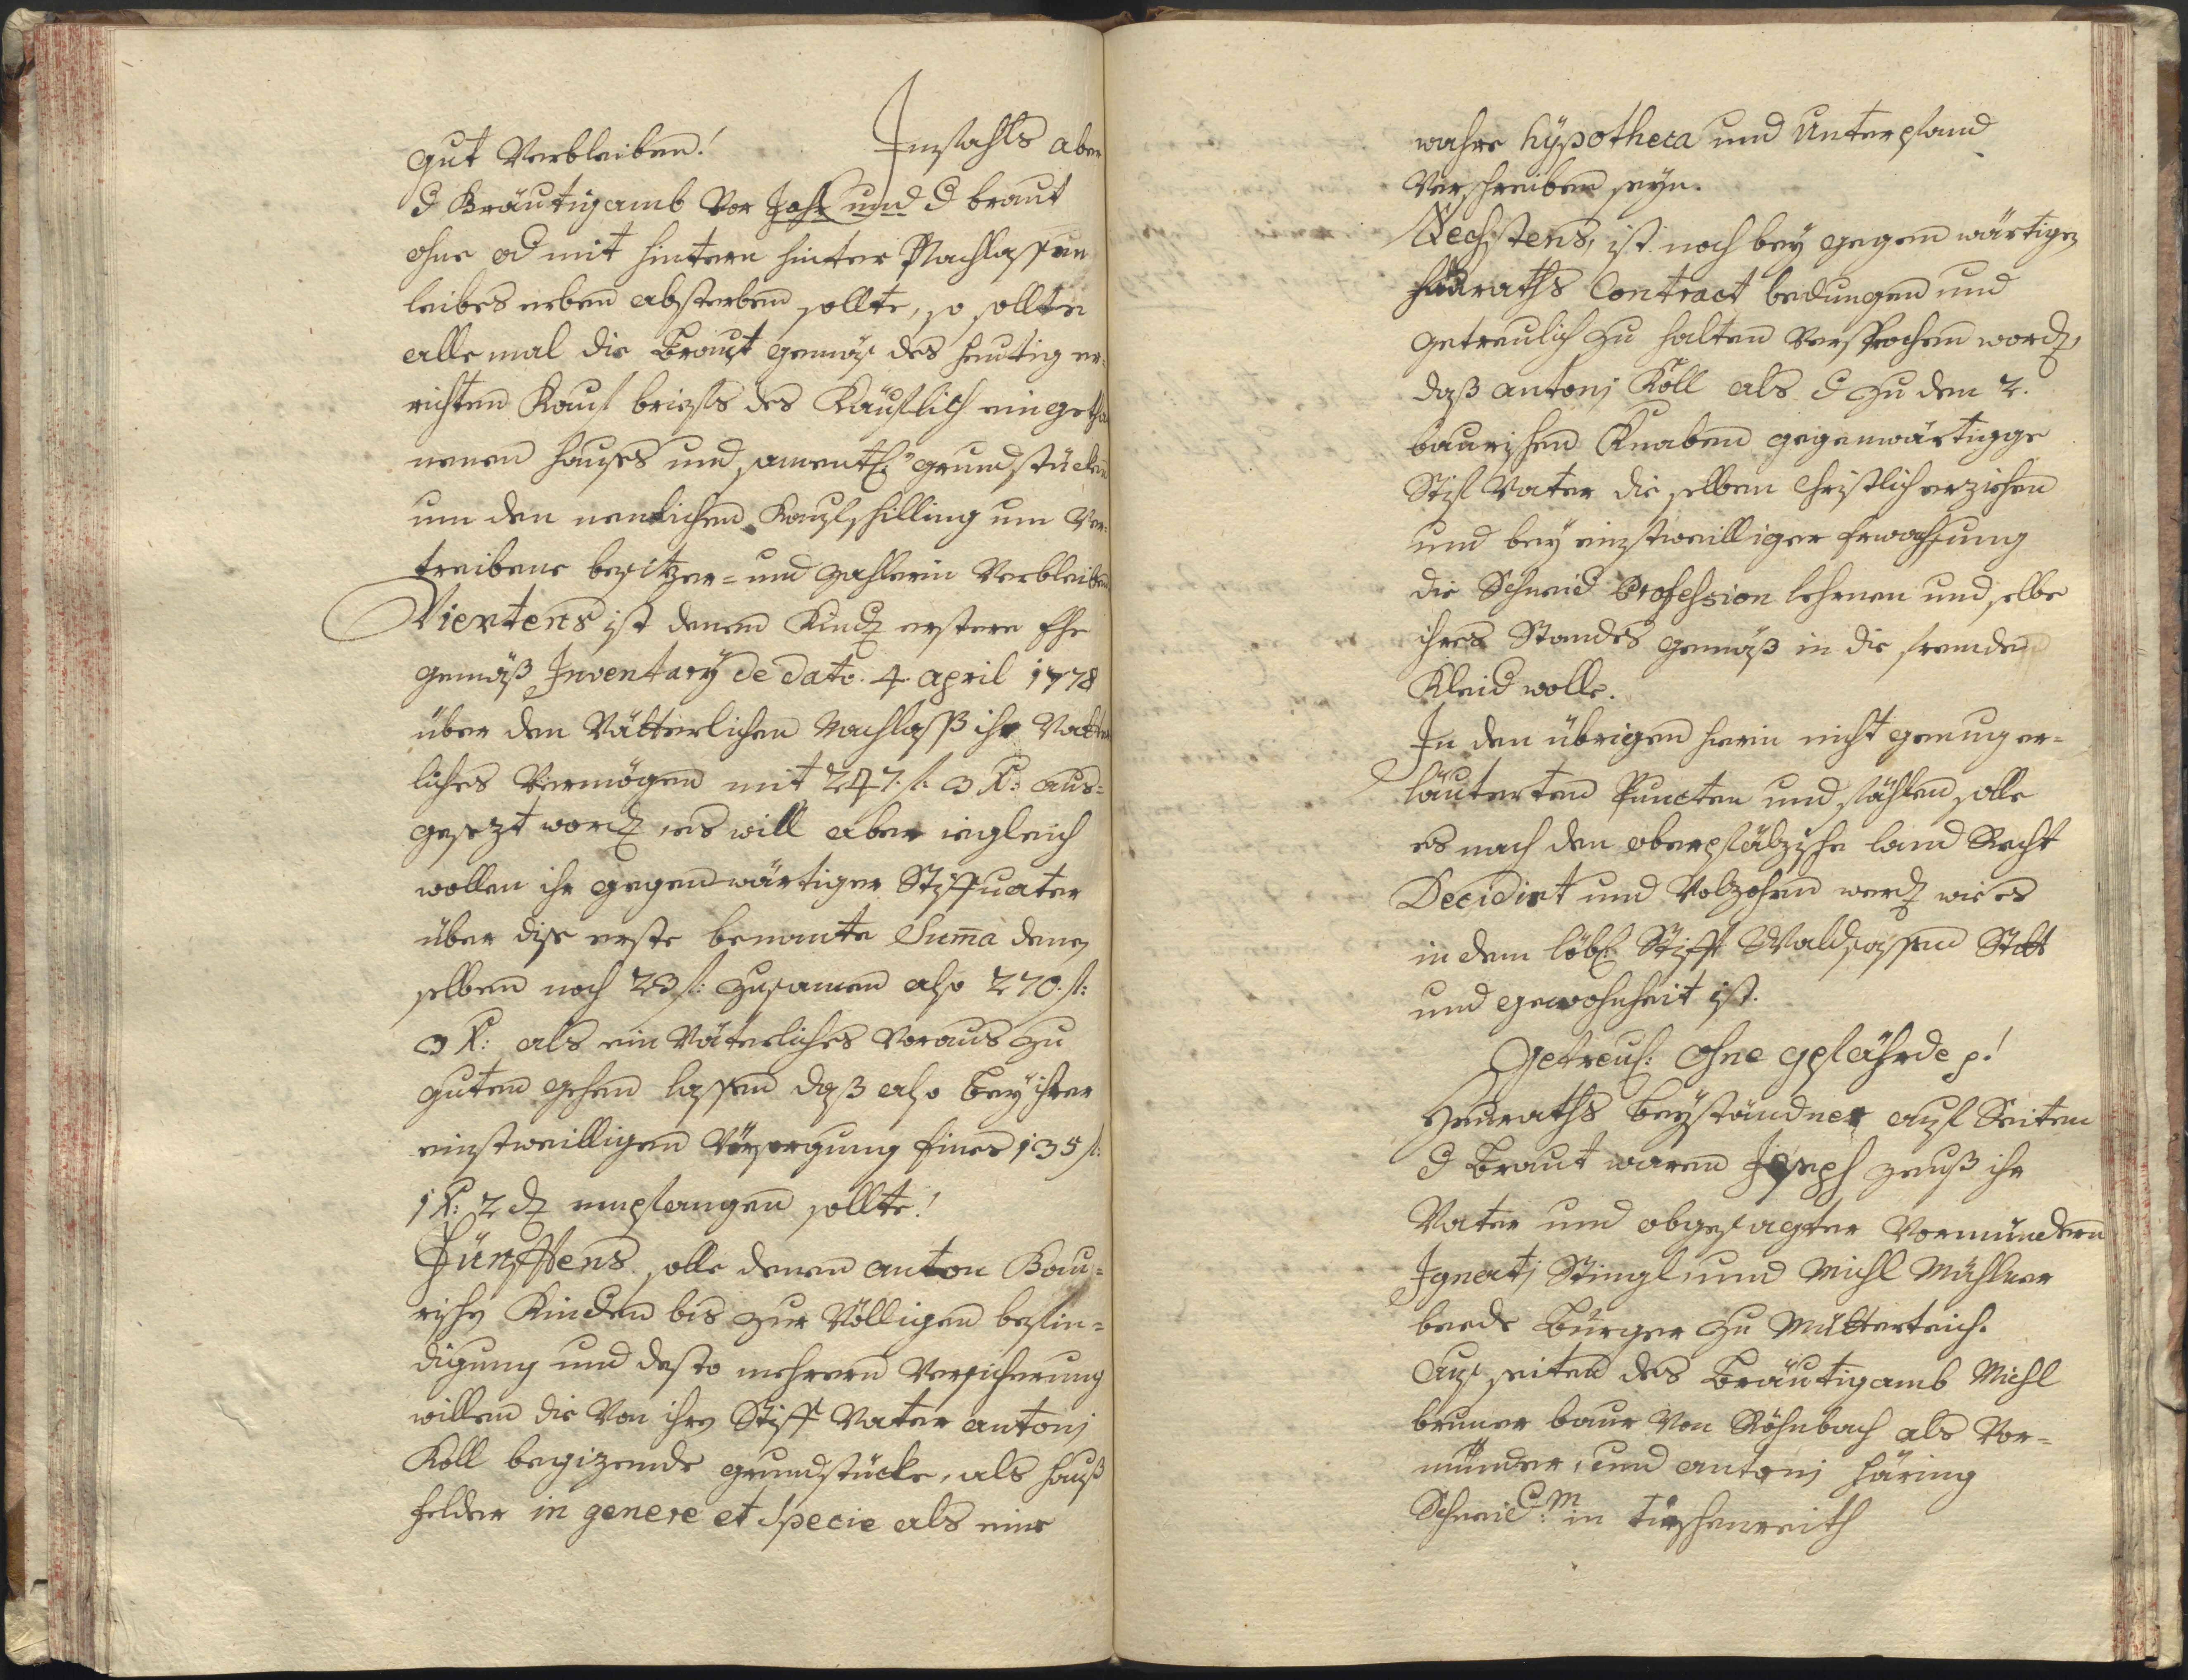 gut Verbleiben! Imfahls aber
d Bräutigamb vor Jahr und d braut
ohne od mit hintern hinter Nachlassen
leibes erben absterben sollte, so sollte
alle mal die Braut gemäs des heutig er-
richten Kauf briefs des Käuflich eingetha
nenen Hauses und sament: grundstücken
um den nemlichen Kaufschilling um Ver-
treibene besitzer- und Zahlerin Verbleiben
Viertens ist denen Kindn erstern Ehe
gemäß Inventary de dato 4. april 1778
über den Vätterlichen Nachlaß ihr Vätter
liches Vermögen mit 247. f. 3 K: aus-
gesezt wordn, es will aber iegleich
wollen ihr gegenwärtiger Stiffvater
über dise erste benante Suma denen
selben noch 23 f: zusamen also 270. f:
3 K: als ein Väterliches Voraus zu
guten gehen lassen daß also bey ihrer
einstweilligen Versorgung Eines 135 f:
1 K: 2 dn empfangen sollte!
Fünftens solle denen anton Bau-
rischn Kindern bis zur Völligen befrie-
digung und desto mehrern Versicherung
willen die Von ihrn Stiff Vater antonj
Köll besizende grundstücke, als Hauß
felder in genere et specie als eine
wahre hÿpotheca und Unterpfand
Verschreiben seyn.
Sechstens, ist noch bey gegenwärtigen
Heuraths Contract bedungen und
getreulich zu halten Versprochen wordn,
daß antonj Köll als d zu den 2.
baurischen Knaben gegenwärtigge
Stif Vater die selben Christlich erziehen
und bey einstweilliger Erwachsung
die Schneid Profession lehrnen und selbe
ihres Standes gemäß in die fremde
Kleid wolle.
In den übrigen hierin nicht genug er-
läuterten Puncten und fählen solle
es nach den oberpfälzische land Recht
Decidirt und Volzohen werdn wie es
in dem löbl: Stifft Waldsassen Statt
und gewohnheit ist.
Getreul: ohne gefährde p!
Heuraths Beyständner auf Seiten
d Braut waren Joseph Zeuß ihr
Vater und obgesagter Vormündern
Ignatj Stingl, und Michl Mähner
beede Bürger zu Mitterteich.
Auf seiten des Bräutigamb Michl
bruner baur von Röhnbach als Vor-
münder, und antonj Häring
Schneid: M in Tirschenreith